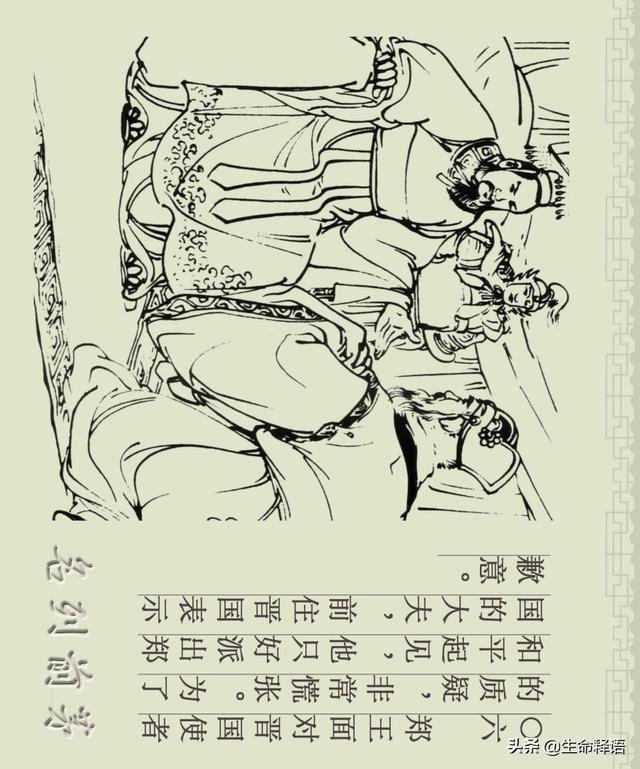 〇六 郑王面对晋国使者
的质疑，非常慌张。为了
和平起见，他只好派出郑
国的大夫，前住晋国表示
歉意。
名列前茅
头条 @生命释语